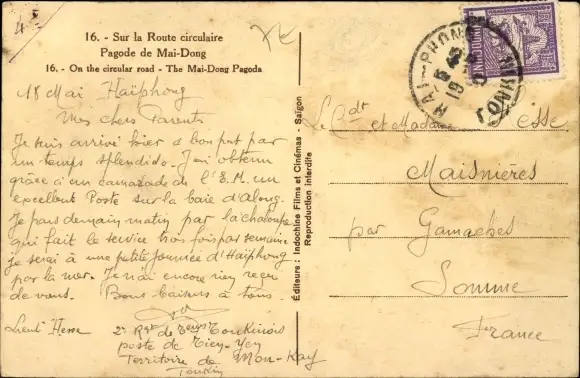 4
16. - Sur la Route circulaire
Pagode de Maï-Dong
16. - On the circular road - The Maï-Dong Pagoda
18 Mai Haïphong
Mes chers Parents
Je suis arrivé hier à bon port par
un temps splendide. J'ai obtenu
grâce à un camarade de l'E.M. un
excellent Poste sur la baie d'Along.
Je pars demain matin par la chaloupe
qui fait le service trois fois par semaine
je serai à une petite journée d'Haïphong
par la mer. Je n'ai encore rien reçu
de vous. Bons baisers à tous.
Lieut Hesse
2e Rgt de Tirrs Tonkinois
poste de Tien-Yen
Territoire de Mon-Kay
Tonkin
Éditeurs : Indochine Films et Cinémas - Saigon
Reproduction interdite
HAÏ-PHONG
TONKIN
INDOCHINE
Le Cdt et Madame Hesse
Maisnières
par Gamaches
Somme
France